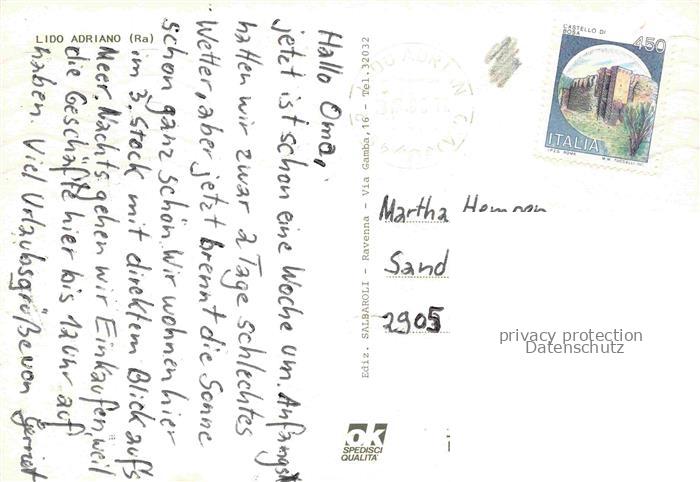 LIDO ADRIANO (Ra)
Hallo Oma,
jetzt ist schon eine Woche um. Anfangs
hatten wir zwar 2 Tage schlechtes
Wetter, aber jetzt brennt die Sonne
schon ganz schön. Wir wohnen hier
im 3. Stock mit direktem Blick aufs
Meer. Nachts gehen wir Einkaufen, weil
die Geschäfte hier bis 12 Uhr auf
haben. Viel Urlaubsgrüße von Gerriet
Ediz. SALBAROLI - Ravenna - Via Gamba,16 - Tel.32032
CASTELLO DI
BOSA
450
ITALIA
Martha
Sand
2905
privacy protection
Datenschutz
ok
SPEDISCI
QUALITA'